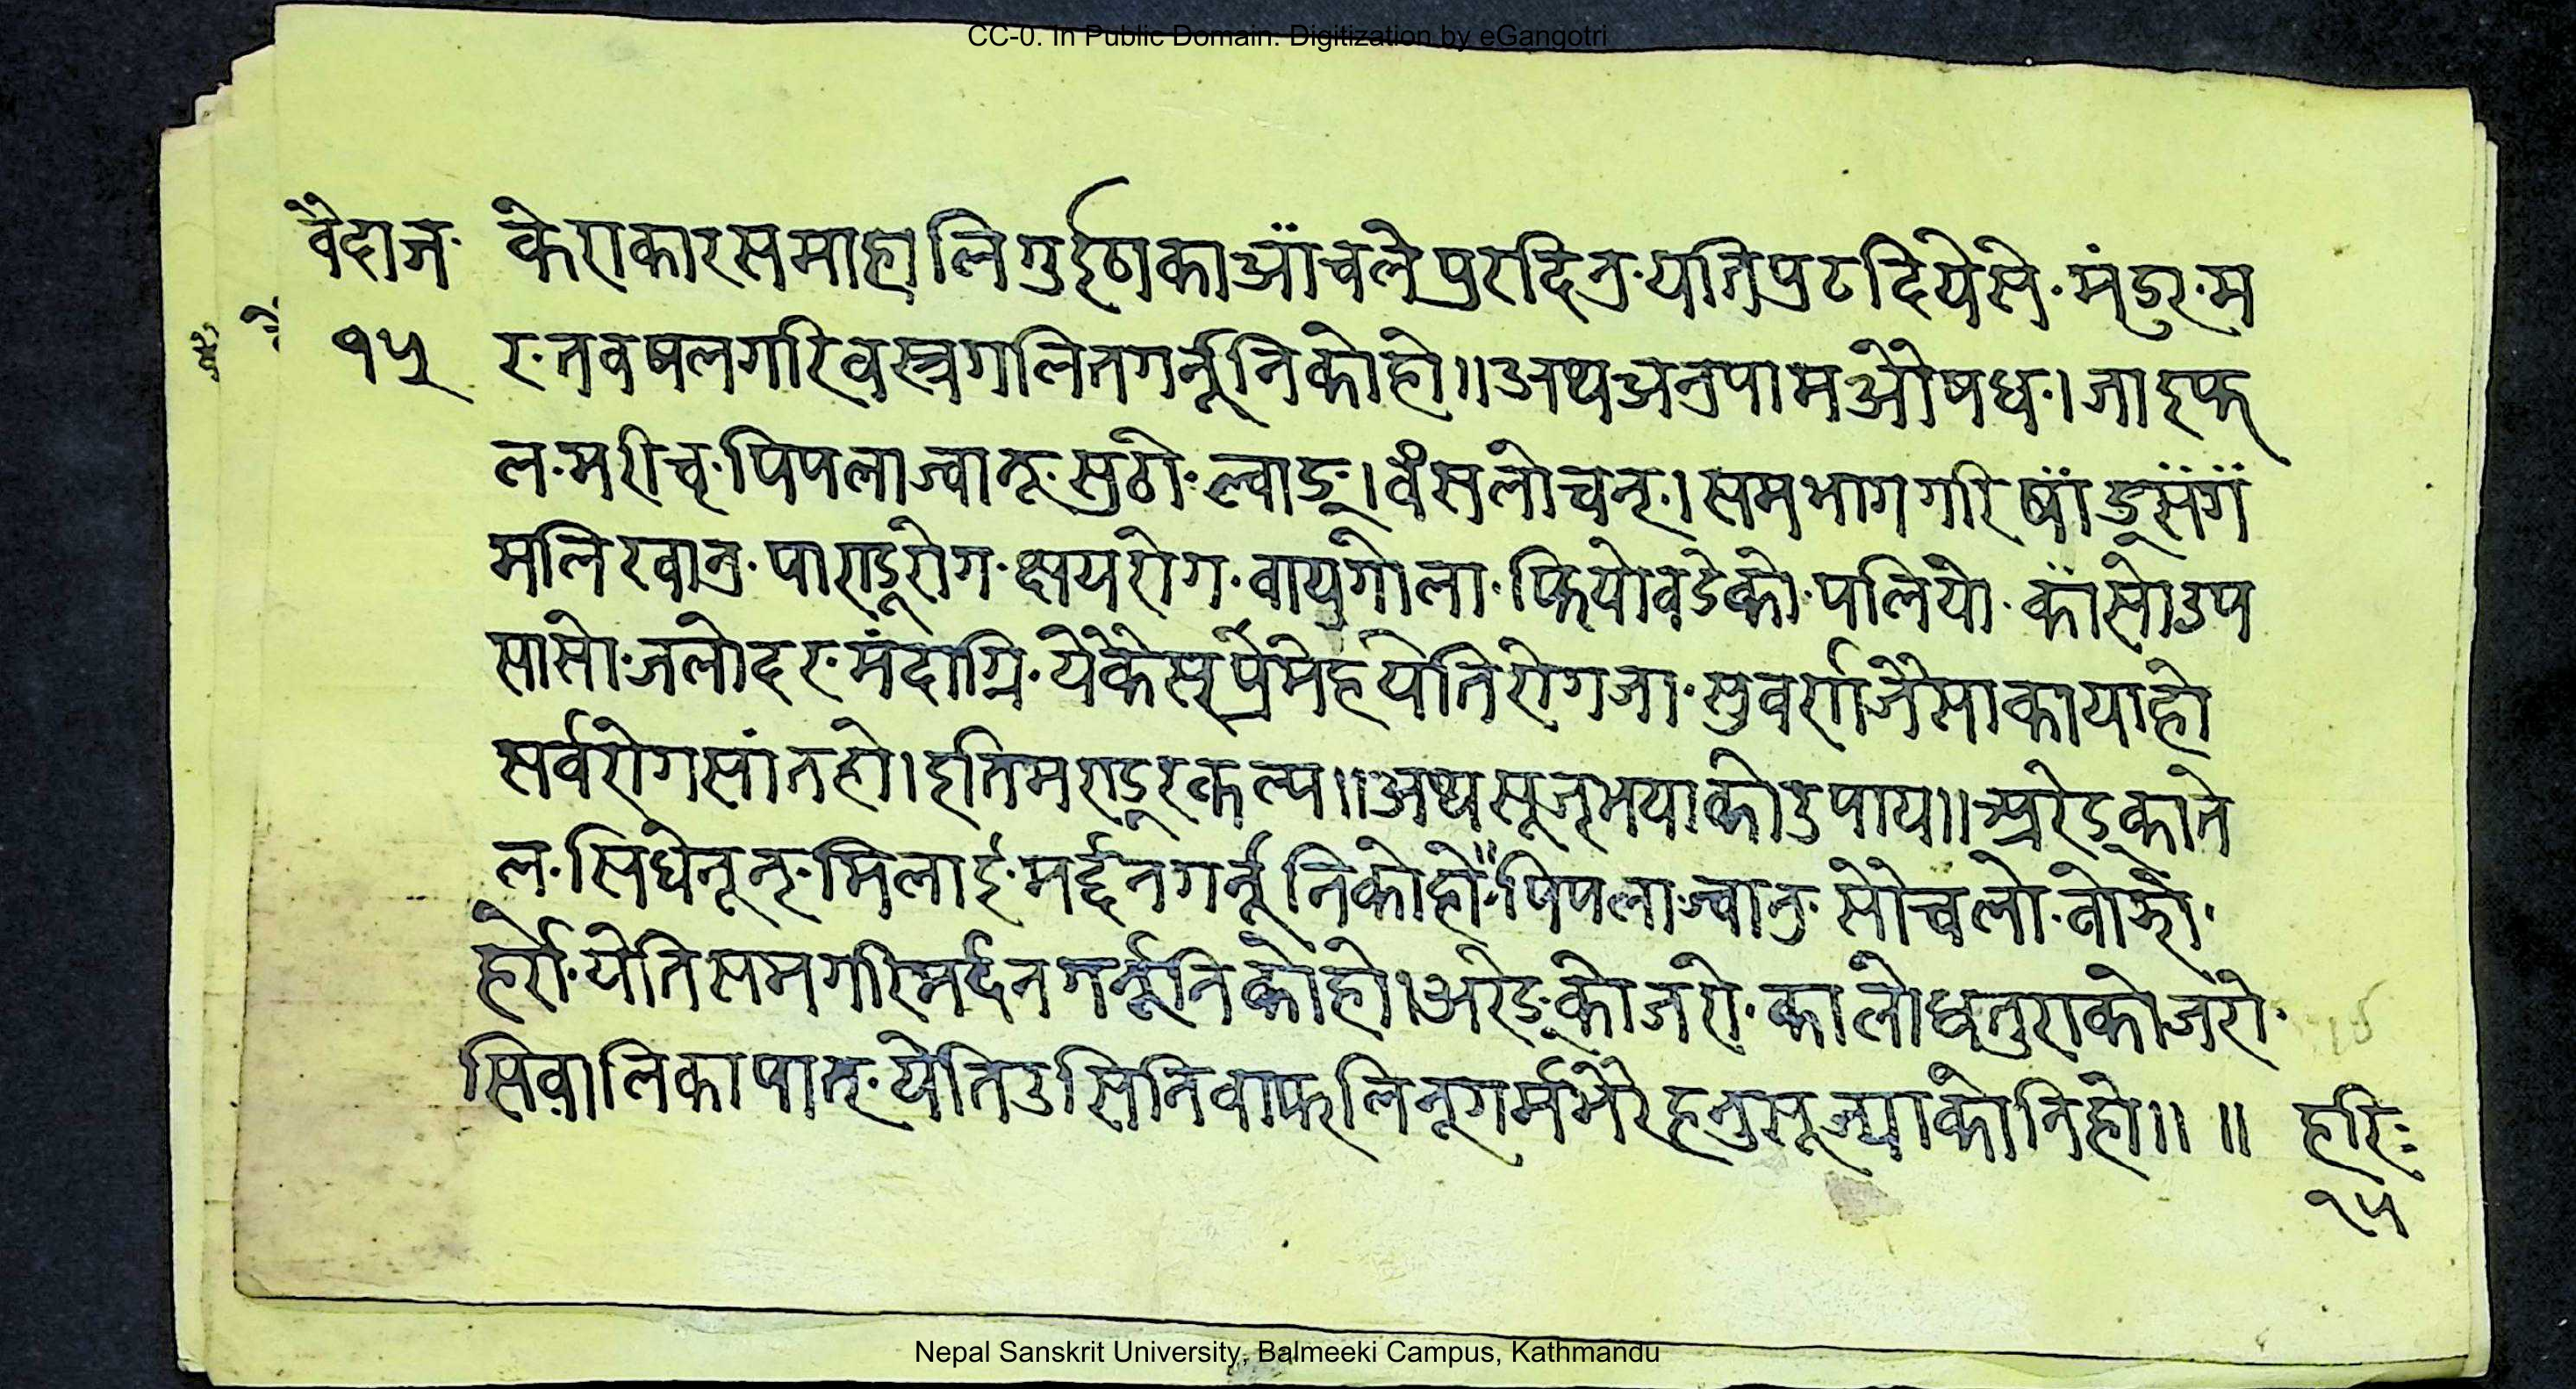 CC-0. In Public Domain. Digitization by eGangotri
वैदाज· केराकारसमाहालिगुईठाकाआँचलेपुरदिनु·यतिपुटदियेसे·मंडुर·म
१५ र·तवषलगरिवस्त्रगलितगर्नूनिकोहो॥अथअनुपामऔषध·।जाइफ
ल·मरीच्·पिपलाज्वानू·सुठो·ल्वाङ्।वंसलोचन्·।समभागगरिषाँडूसँग
मलिखानु·पाराडूरोग·क्षयरोग·वायुगोला·फियोवढेको·पलियो·काँसोउप
सासो·जलोदर·मंदाग्नि·येकैसप्रमेहयेतिरोगजा·सुवर्राजैसाकायाहो
सर्वरोगसांतहो।इतिमराडूरकल्प॥अथसूजूभयाकोउपाय॥अरेड्काते
ल·सिधेनून्·मिलाई·मर्द्दनगर्नूनिकोहो॥पिपलाज्वानु·सोचलो·तोर्‍यो·
हर्रो·येतिसमगरिमर्दनगर्नूनिकोहो।अरेड्कोजरो·कालोधतुराकोजरो·
सिवालिकापात्·येतिउसिनिवाफलिनूगर्मभैरहनुसूज्याकोनिहो॥ ॥ हरिः
१५
Nepal Sanskrit University, Balmeeki Campus, Kathmandu